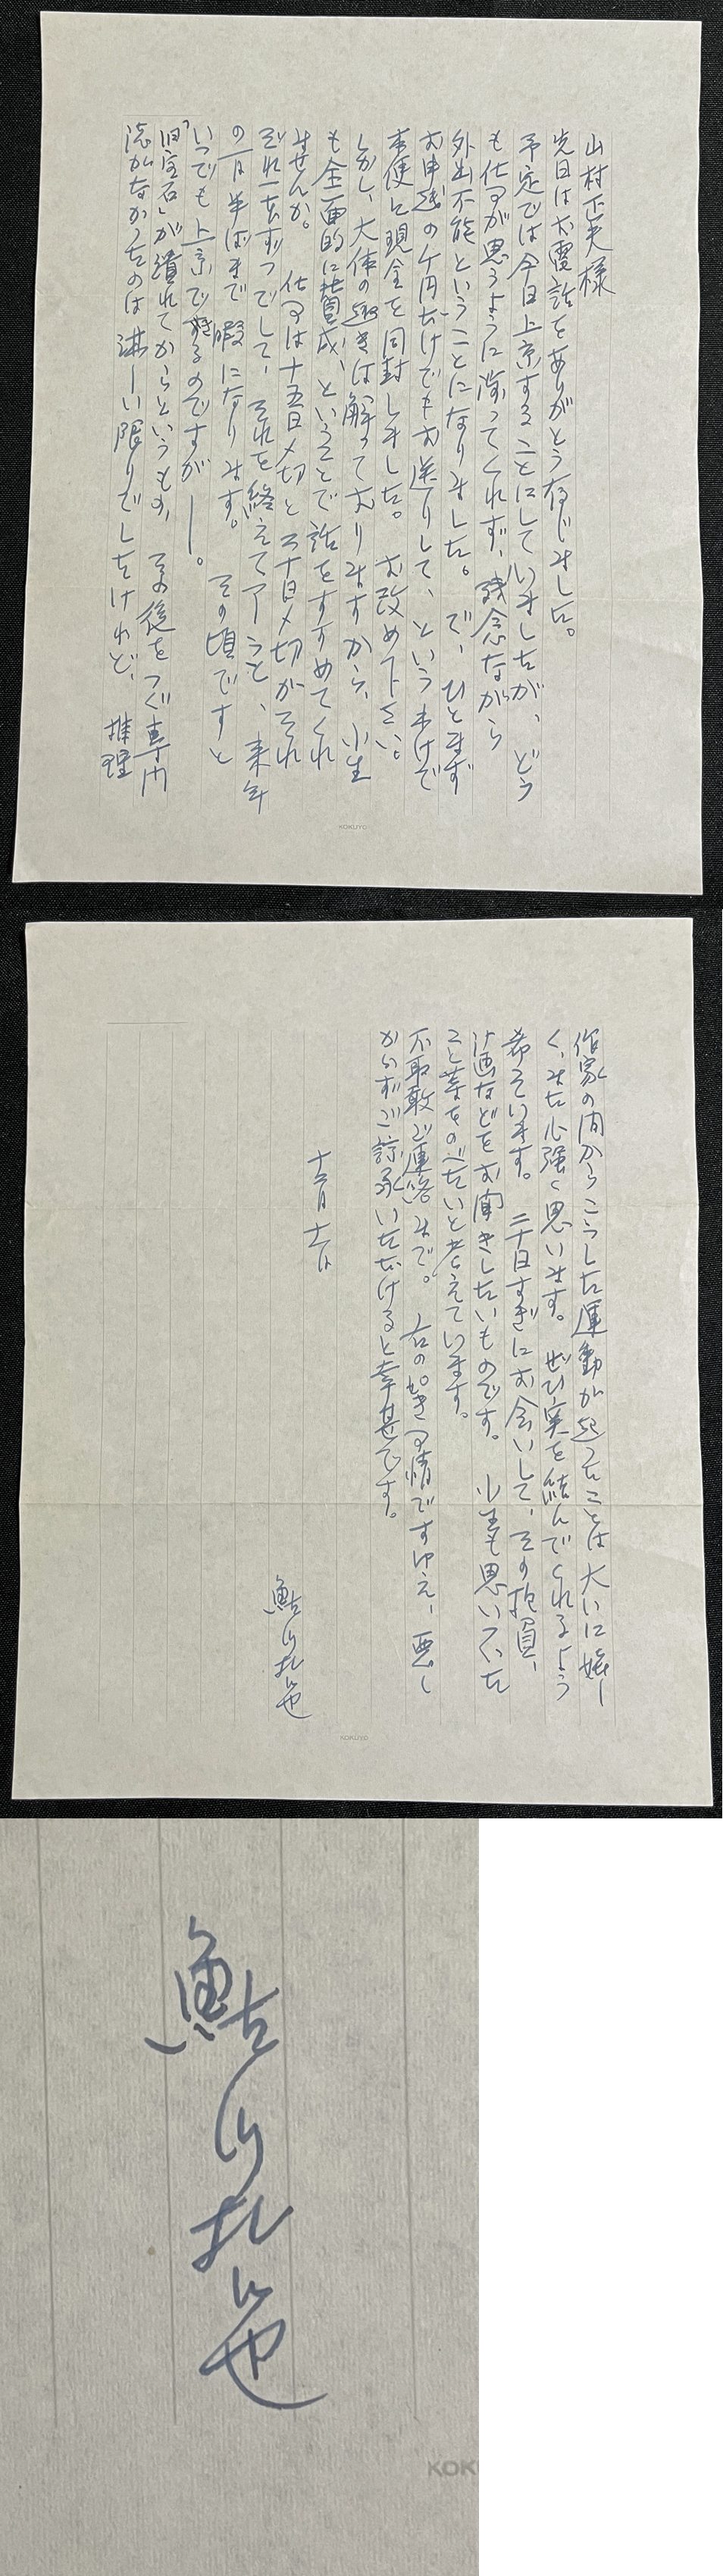 山村正夫様
先日はお電話をありがとう存じました。
予定では今日上京することにしていましたが、どう
も仕事が思うように滞ってくれず、残念ながら
外出不能ということになりました。で、ひとまず
お申越の ケ月だけでもお送りして、というわけで
本便に現金を同封しました。お改め下さい。
しかし、大体の趣きは解っておりますから、小生
も全面的に賛成、ということで話をすすめてくれ
ませんか。仕事は十五日〆切と二十日〆切がそれ
ぞれ一本ずつでして、それを終えてアラと、来年
の一月半ばまで暇になります。その頃ですと
いつでも上京できるのですが――。
「旧宝石」が潰れてからというもの、その後をつぐ専門
誌がなかったのは淋しい限りでしたけれど、推理
KOKUYO
作家の内からこうした運動が起ったことは大いに嬉し
く、また心強く思います。ぜひ実を結んでくれるよう
希っています。二十日すぎにお会いして、その抱負、
計画などをお聞きしたいものです。小生も思いついた
こと等をのべたいと考えています。
不取敢ご連絡まで。右の如き事情ですゆえ、悪し
からずご諒承いただけると幸甚です。
十二月十一日
鮎川哲也
KOKUYO
鮎川哲也
KOK